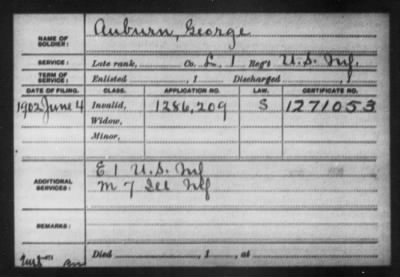 NAME OF SOLDIER: Auburn, George
SERVICE: Late rank, Co. L, 1 Reg't U.S. Inf.
TERM OF SERVICE: Enlisted , 1 Discharged , 1
DATE OF FILING. CLASS. APPLICATION NO. LAW. CERTIFICATE NO.
1902 June 4 Invalid, 1286,209 S 1271053
Widow,
Minor,
ADDITIONAL SERVICES: E 1 U.S. Inf
M 7 Ill Inf
REMARKS:
Died , 1 , at